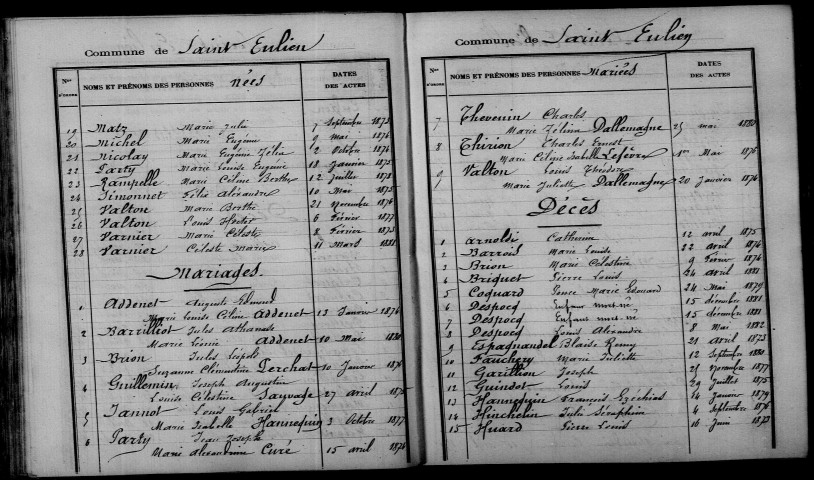 Commune de Saint Eulien
Nos D'ORDRE NOMS ET PRÉNOMS DES PERSONNES nées DATES DES ACTES
19 Matz Marie Julie 7 Septembre 1873
20 Michel Marie Eugénie 9 Mai 1876
21 Nicolay Marie Eugénie Zélie 2 Octobre 1876
22 Party Marie Louise Eugénie 18 Janvier 1875
23 Rampelle Marie Céline Berthe 12 Juillet 1878
24 Simonnet Félix Alexandre 10 Mai 1875
25 Valton Marie Berthe 21 Novembre 1876
26 Valton Louis Hector 6 Février 1877
27 Varnier Marie Céleste 8 Février 1873
28 Varnier Céleste Marie 11 Mars 1881
Mariages.
1 Addenet Auguste Edmond
Marie Louise Céline Addenet 13 Janvier 1876
2 Barrilliot Jules Athanase
Marie Addenet 10 Mai 1880
3 Brion Jules Léopold
Suzanne Clémentine Perchat 10 Janvier 1876
4 Guillemin Joseph Augustin
Louise Célestine Sauvage 27 avril 1875
5 Jannot Louis Gabriel
Marie Isabelle Hannequin 3 Octobre 1877
6 Party Jean Joseph
Marie Alexandrine Curé 15 avril 1874
Commune de Saint Eulien
Nos D'ORDRE NOMS ET PRÉNOMS DES PERSONNES Mariées DATES DES ACTES
7 Thevenin Charles
Marie Zélina Dallemagne 25 mai 1880
8 Thirion Charles Ernest
Marie Céline Isabelle Lefèvre 1er Mai 1876
9 Valton Louis Théodore
Marie Juliette Dallemagne 20 Janvier 1874
Décès
1 Arnoldi Catherine 12 avril 1875
2 Barrois Marie Louise 22 avril 1874
3 Brion Marie Célestine 9 Février 1874
4 Briquet Pierre Louis 24 avril 1881
5 Coquard Ponce Marie Edouard 24 Mai 1879
6 Despocq Enfant mort-né 15 décembre 1881
7 Despocq Enfant mort-né 15 décembre 1881
8 Despocq Louis Alexandre 8 Mai 1882
9 Espagnandel Blaise Remy 21 Avril 1873
10 Fauchery Marie Juliette 12 Septembre 1880
11 Garillion Joseph 25 Novembre 1877
12 Guindot Louis 29 Juillet 1875
13 Hannequin François Ezéchias 24 Janvier 1879
14 Hinchelin Julie Séraphine 4 Septembre 1876
15 Huard Pierre Louis 16 Juin 1873